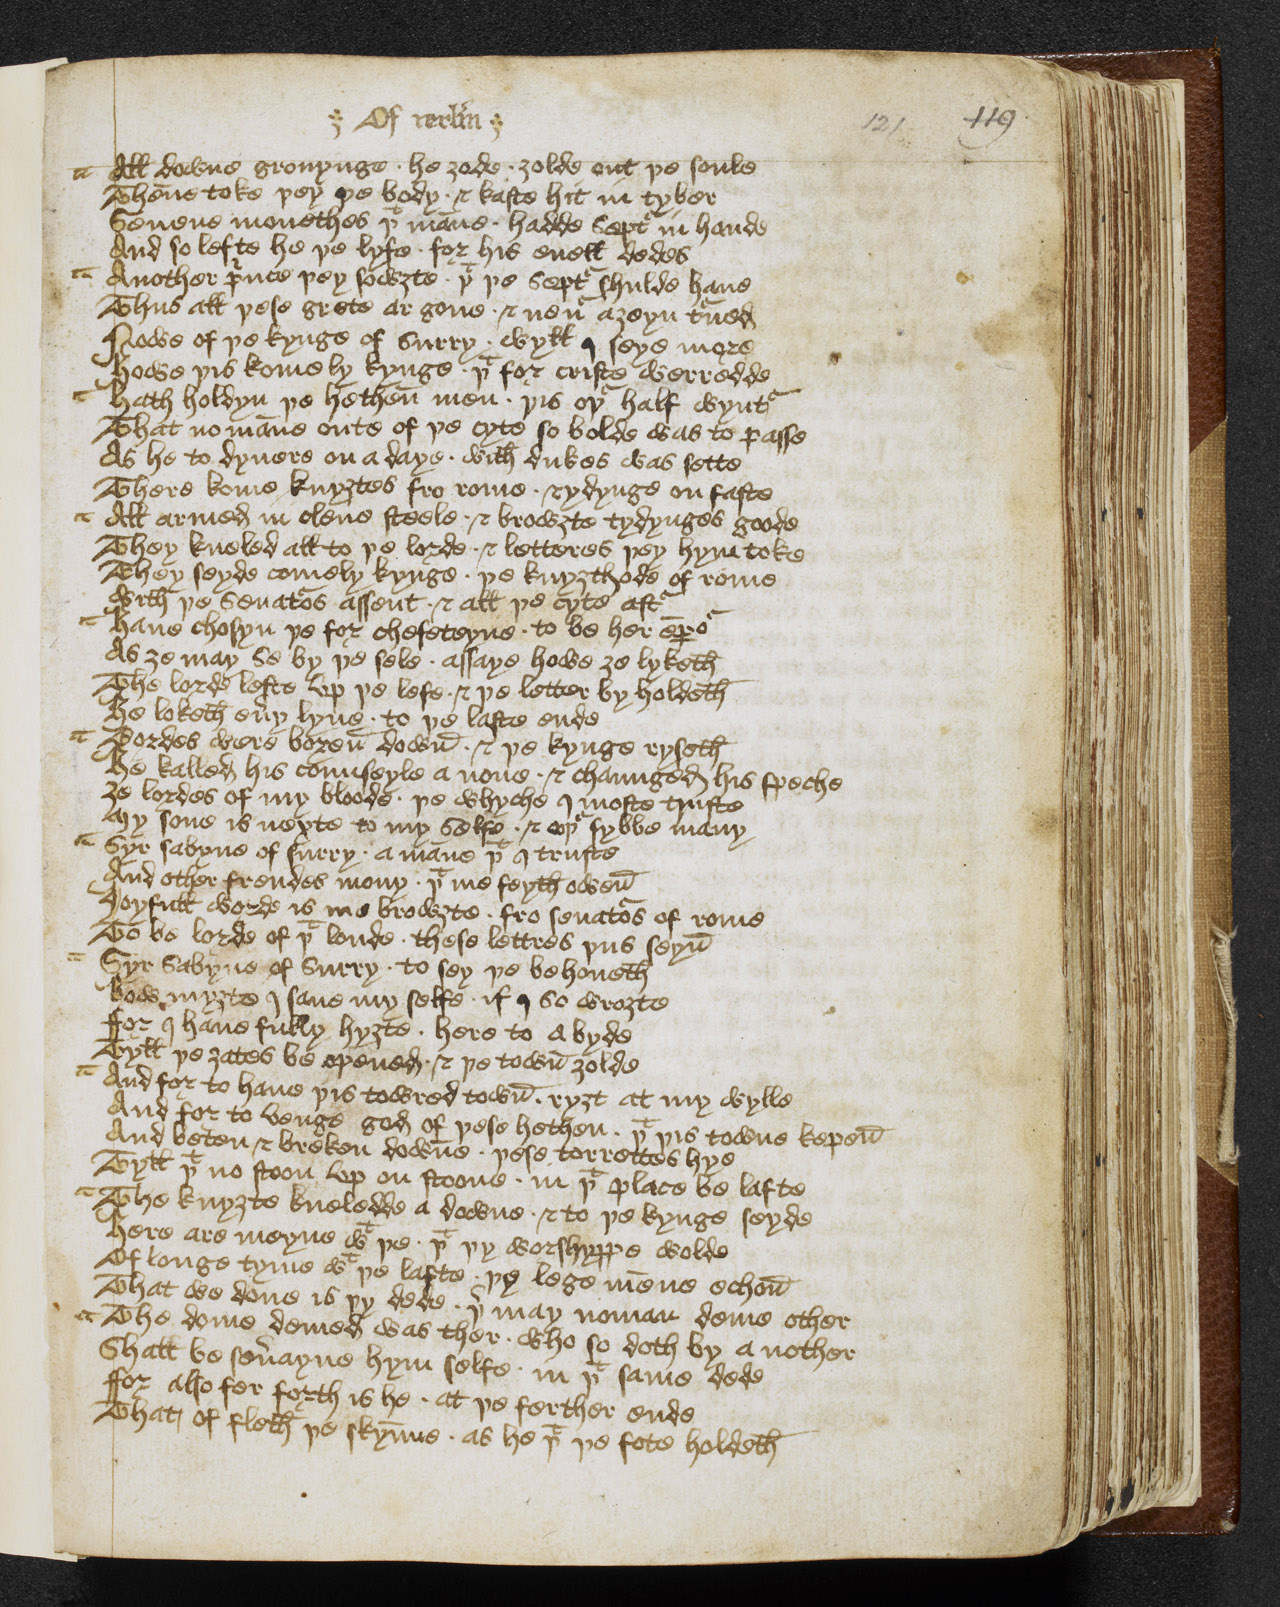 Of ierl̄m
121 119
All downe gronynge · he zode · zolde out þe soule
Then̄e toke þey þe body · & kaste hit in tyber
Seuene monethes þᵗ mān̄e · hadde Septʳ in hande
And so lefte he þe lyfe · for his euell dedes
Another pʳince þey sowzte · þᵗ þe Septʳ shulde haue
Thus all þese grete ar gone · & neuʳ azeyn tʳned
Nowe of þe kynge of Surry · wyll I seye more
Howe þis komely kynge · þᵗ for criste werredde
Hath holdyn þe hethen̄ men · þis oþʳ half wyntʳ
That no mān̄e oute of þe cyte so bolde was to passe
As he to dynere on a daye · with dukes was sette
There kome knyztes fro rome · rydynge on faste
All armed in clene steele · & browzte tydynges goode
They kneled all to þe lorde · & letteres þey hym toke
They seyde comely kynge · þe knyzthode of rome
With þe Senatoʳs assent · & all þe cyte aftʳ
Haue chosyn þe for cheseteyne · to be her ēp̱oʳ
As ze may Se by þe sele · assaye howe ze lyketh
The lorde lefte vp þe lefe · & þe letter by holdeth
He loketh eūy lyne · to þe laste ende
Bordes were boren̄ down̄ · & þe kynge ryseth
He kalled his counseyle a none · & chaunged his speche
Ze lordes of my bloode · þe whyche I moste truste
My sone is nexte to my Selfe · & oþʳ sybbe many
Syr sabyne of surry · a mān̄e þᵗ I truste
And other frendes mony · þᵗ me feyth owen̄
Joyfull worde is me browzte · fro senatoʳs of rome
To be lorde of þᵗ londe · these lettres þus seyn̄
Syr Sabyne of Surry · to sey þe behoueth
how myzte I saue my selfe · if I so wrozte
ffor I haue fully hyzte · here to a byde
Tyll þe zates be opened · & þe town̄ zolde
And for to haue þis towred town̄ · ryzt at my wylle
And for to venge god of þese hethen · þᵗ þis towne kepen̄
And beten & breken downe · þese torrettes hye
Tyll þᵗ no stoon vp on stoone · in þᵗ place be lafte
The knyzte kneledde a downe · & to þe kynge seyde
Here are meyne wᵗ þe · þᵗ þy worshyppe wolde
Of longe tyme wᵗ þe lafte · þy lege mēne echon̄
That we done is þy dede · þʳ may noman deme other
The dome demed was ther · who so doth by a nother
Shall be soūayne hym selfe · in þᵗ same dede
ffor also fer forth is he · at þe ferther ende
That of fleth þe skyn̄ne · as he þᵗ þe fote holdeth